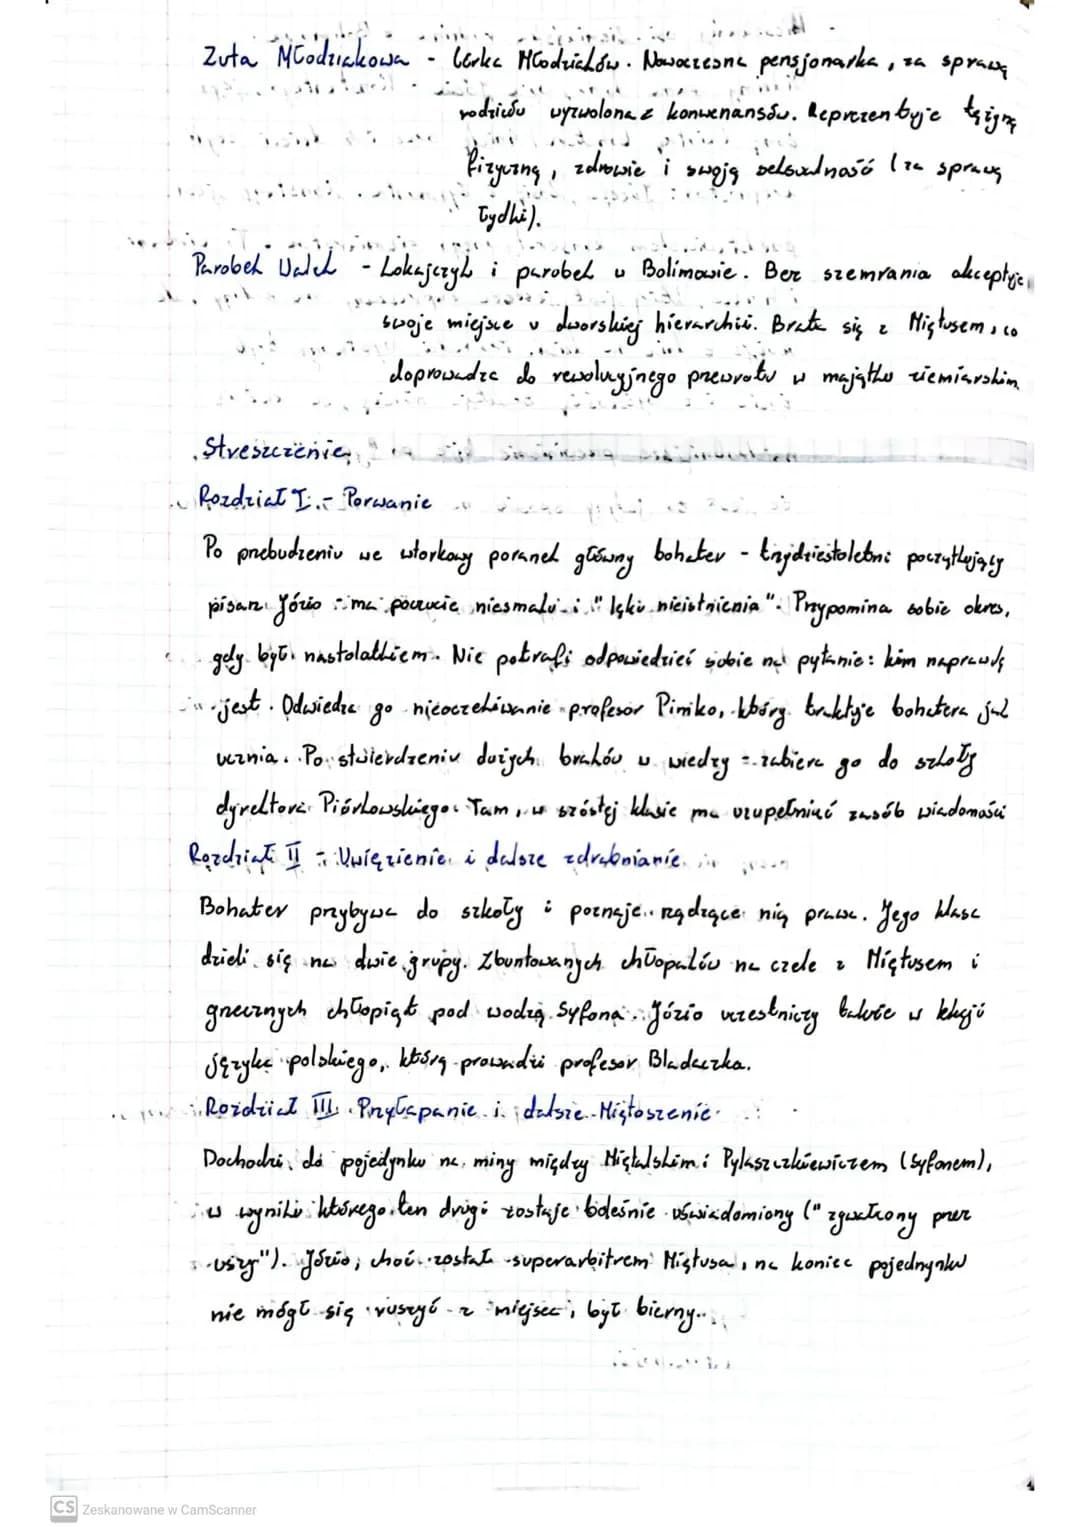 Zuta Młodziakowa - Córka Młodziaków. Nowoczesna pensjonarka, za sprawą
rodziców wyzwolona z konwenansów. Reprezentuje tężyznę
fizyczną, zdrowie i swoją seksualność (za sprawą
łydki).
Parobek Walek - Lokajczyk i parobek w Bolimowie. Bez szemrania akceptuje
swoje miejsce w dworskiej hierarchii. Brata się z Miętusem, co
doprowadza do rewolucyjnego przewrotu w majątku ziemiarskim
Streszczenie
Rozdział I - Porwanie
Po przebudzeniu we wtorkowy poranek główny bohater - trzydziestoletni początkujący
pisarz Józio - ma poczucie niesmaku i "lęku nieistnienia". Przypomina sobie okres,
gdy był nastolatkiem. Nie potrafi odpowiedzieć sobie na pytanie: kim naprawdę
jest. Odwiedza go nieoczekiwanie profesor Pimko, który traktuje bohatera jak
ucznia. Po stwierdzeniu dużych braków w wiedzy - zabiera go do szkoły
dyrektora Piórkowskiego. Tam, w szóstej klasie ma uzupełniać zasób wiadomości
Rozdział II - Uwięzienie i dalsze zdrabnianie
Bohater przybywa do szkoły i poznaje rządzące nią prawa. Jego klasa
dzieli się na dwie grupy. Zbuntowanych chłopaków na czele z Miętusem i
grzecznych chłopiąt pod wodzą Syfona. Józio uczestniczy także w lekcji
języka polskiego, którą prowadzi profesor Bladaczka.
Rozdział III Przyłapanie i dalsze Miętoszenie
Dochodzi do pojedynku na miny między Miętalskim i Pylaszczkiewiczem (Syfonem),
w wyniku którego ten drugi zostaje boleśnie uświadomiony ("zgwałcony przez
uszy"). Józio, choć został superarbitrem Miętusa, na koniec pojedynku
nie mógł się ruszyć z miejsca, był bierny.
CS Zeskanowane w CamScanner